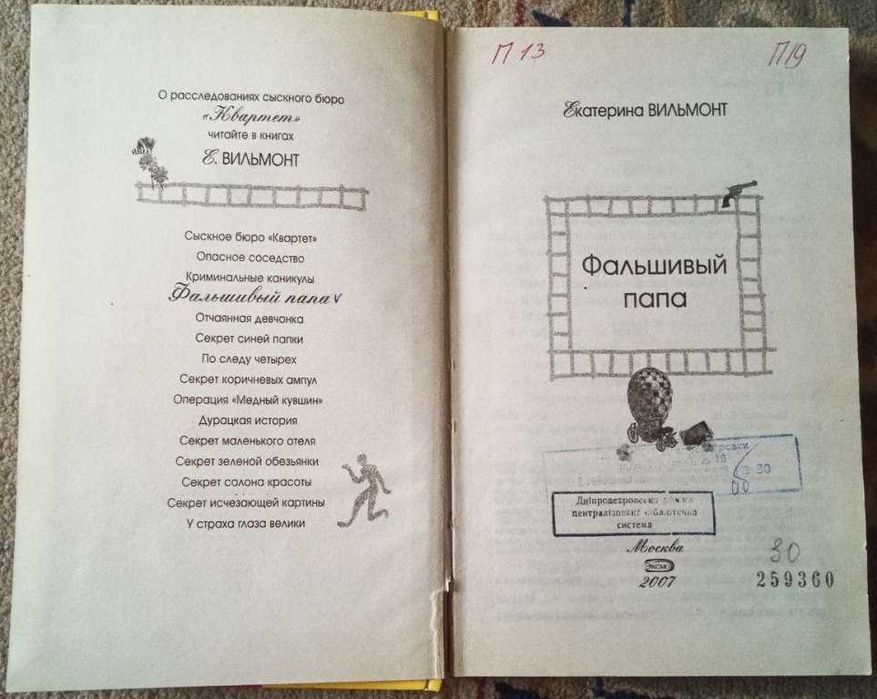 О расследованиях сыскного бюро
«Квартет»
читайте в книгах
Е. ВИЛЬМОНТ
Сыскное бюро «Квартет»
Опасное соседство
Криминальные каникулы
Фальшивый папа ν
Отчаянная девчонка
Секрет синей папки
По следу четырех
Секрет коричневых ампул
Операция «Медный кувшин»
Дурацкая история
Секрет маленького отеля
Секрет зеленой обезьянки
Секрет салона красоты
Секрет исчезающей картины
У страха глаза велики
П 13 П19
Екатерина ВИЛЬМОНТ
Фальшивый
папа
18
30
Дніпропетровська
централізована бібліотечна
система
Москва
ЭКСМО
2007
30
259360